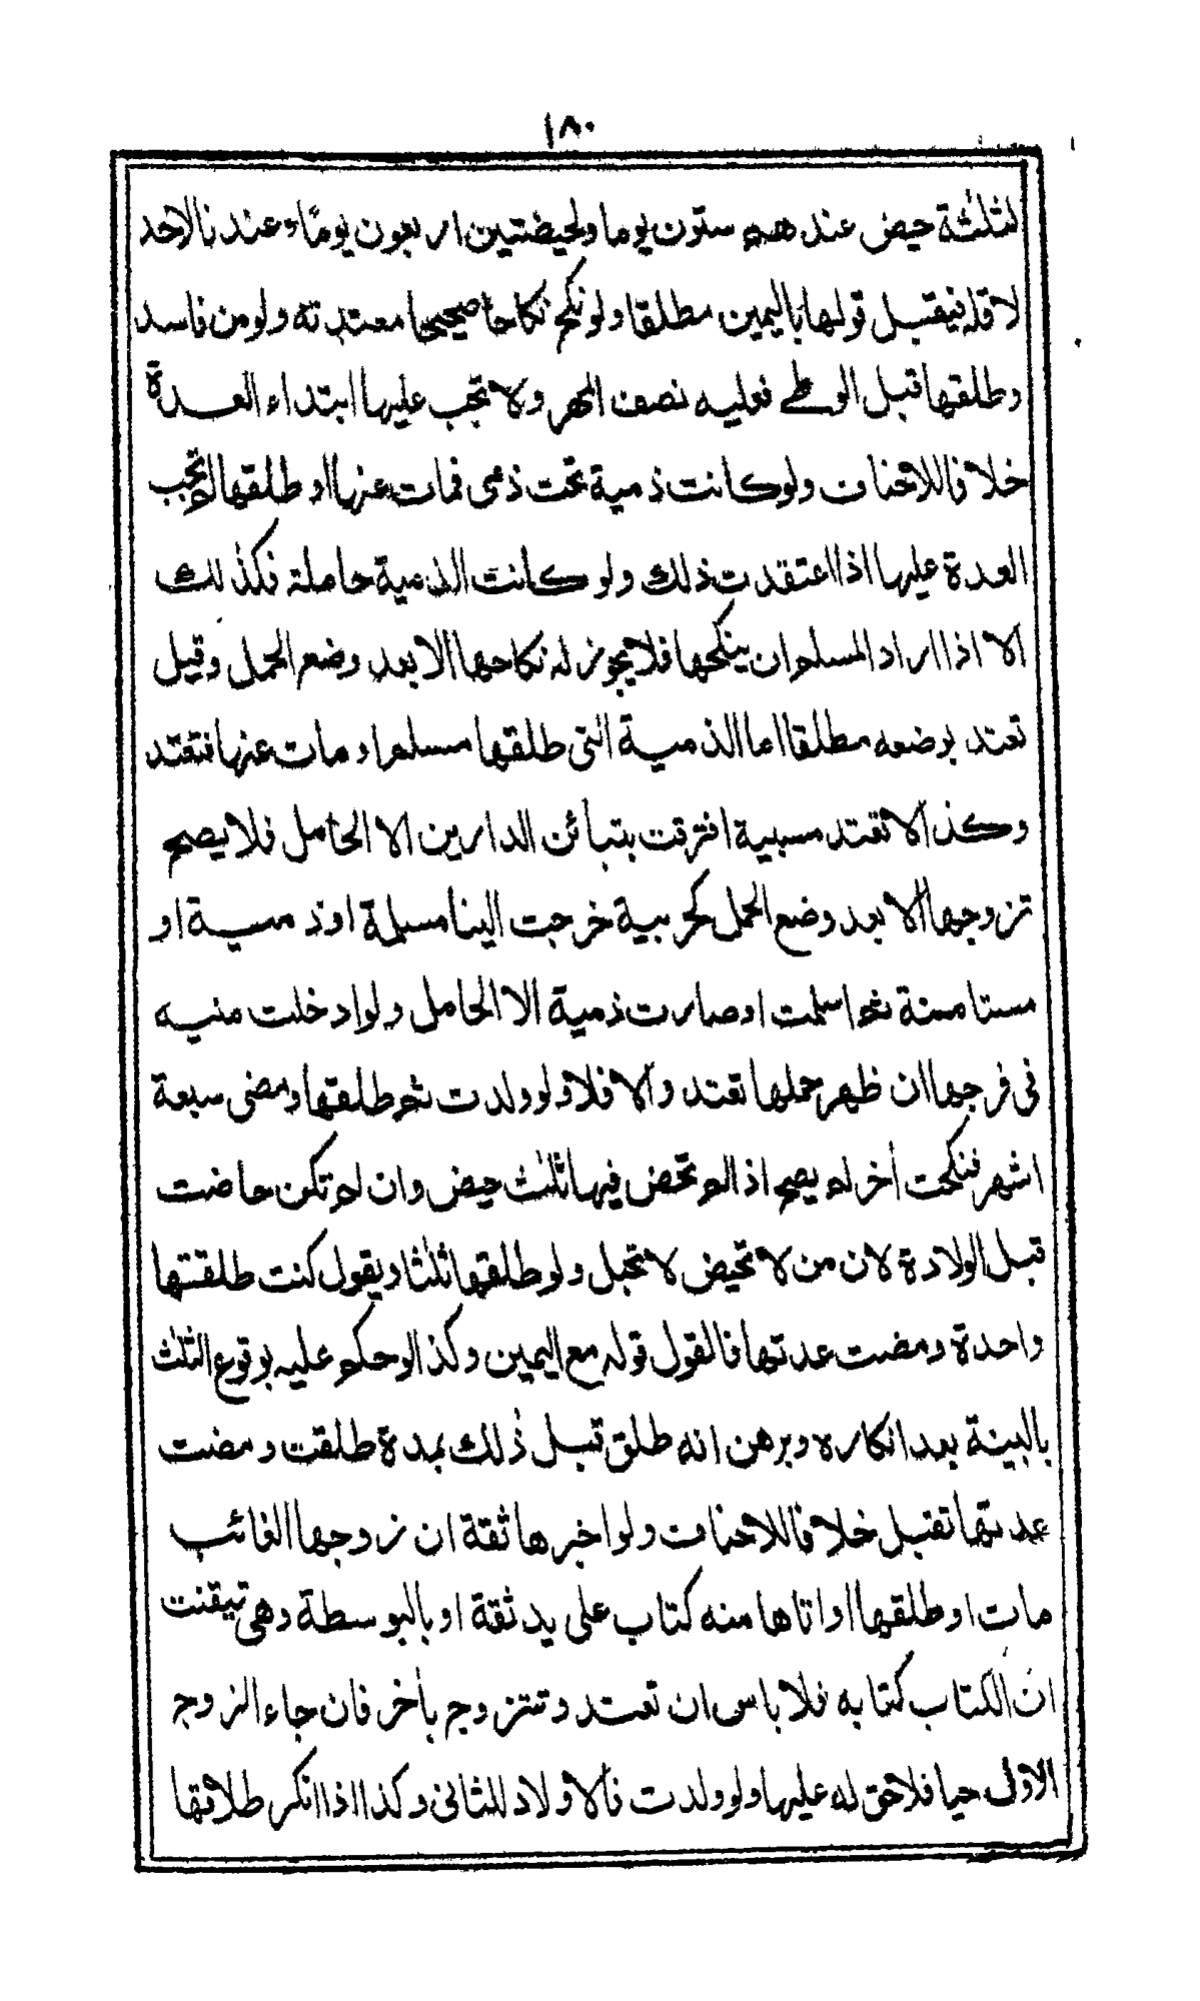 ١٨٠
لثلثة حيض عندهم ستون يوما ولحيضتين اربعون يومًا وعندنا لاحد
لاقله فيقبل قولها باليمين مطلقا ولو نكح نكاحا صحيحا معتدته ولو من فاسد
وطلقها قبل الوطى فعليه نصف المهر ولا تجب عليها ابتداء العدة
خلافا للاحناف ولو كانت ذمية تحت ذمى فمات عنها او طلقها لم تجب
العدة عليها اذا اعتقدت ذلك ولو كانت الذمية حاملة فكذلك
الا اذا اراد المسلم ان ينكحها فلا يجوز له نكاحها الا بعد وضع الحمل وقيل
تعتد بوضعه مطلقا اما الذمية التى طلقها مسلم او مات عنها فتعتد
وكذا لا تعتد مسبية افترقت بتبائن الدارين الا الحامل فلا يصح
تزوجها الا بعد وضع الحمل كحربية خرجت الينا مسلمة او ذمية او
مستامنة ثم اسلمت او صارت ذمية الا الحامل ولو ادخلت منيه
فى فرجها ان ظهر حملها تعتد والا فلا ولو ولدت ثم طلقها ومضى سبعة
اشهر فنكحت أخر لم يصح اذا لم تحض فيها ثلث حيض وان لم تكن حاضت
قبل الولادة لان من لا تحيض لا تحبل ولو طلقها ثلثا ويقول كنت طلقتها
واحدة ومضت عدتها فالقول قوله مع اليمين وكذا لو حكم عليه بوقوع الثلث
بالبينة بعد انكاره وبرهن انه طلق قبل ذلك بمدة طلقت ومضت
عدتها تقبل خلافا للاحناف ولو اخبرها ثقة ان زوجها الغائب
مات او طلقها او اتاها منه كتاب على يد ثقة او بالبوسطة وهى تيقنت
ان الكتاب كتابه فلا باس ان تعتد وتتزوج بأخر فان جاء الزوج
الاول حيا فلا حق له عليها ولو ولدت فالاولاد للثانى وكذا اذا انكر طلاقها